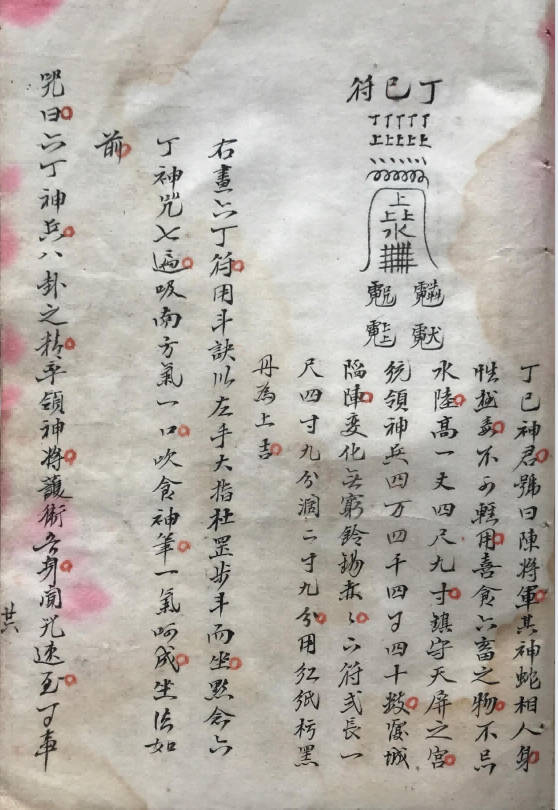 丁巳符
丁巳神君號曰陳將軍其神蛇相人身
性越毒不可轄用喜食六畜之物不忌
水陸高一丈四尺九寸鎮守天屏之宮
統領神兵四万四千四百四十授處城
陷陣變化無窮鈴錫赤〻六符式長一
尺四寸九分濶二寸九分用紅紙朽黑
丹為上吉
右畫六丁符用斗訣以左手大指社罡步斗而坐默念六
丁神咒七遍吸南方氣一口吹食神筆一氣呵成坐法如
前
咒曰六丁神兵八卦之精平領神將護術吾身聞咒速至丁奉